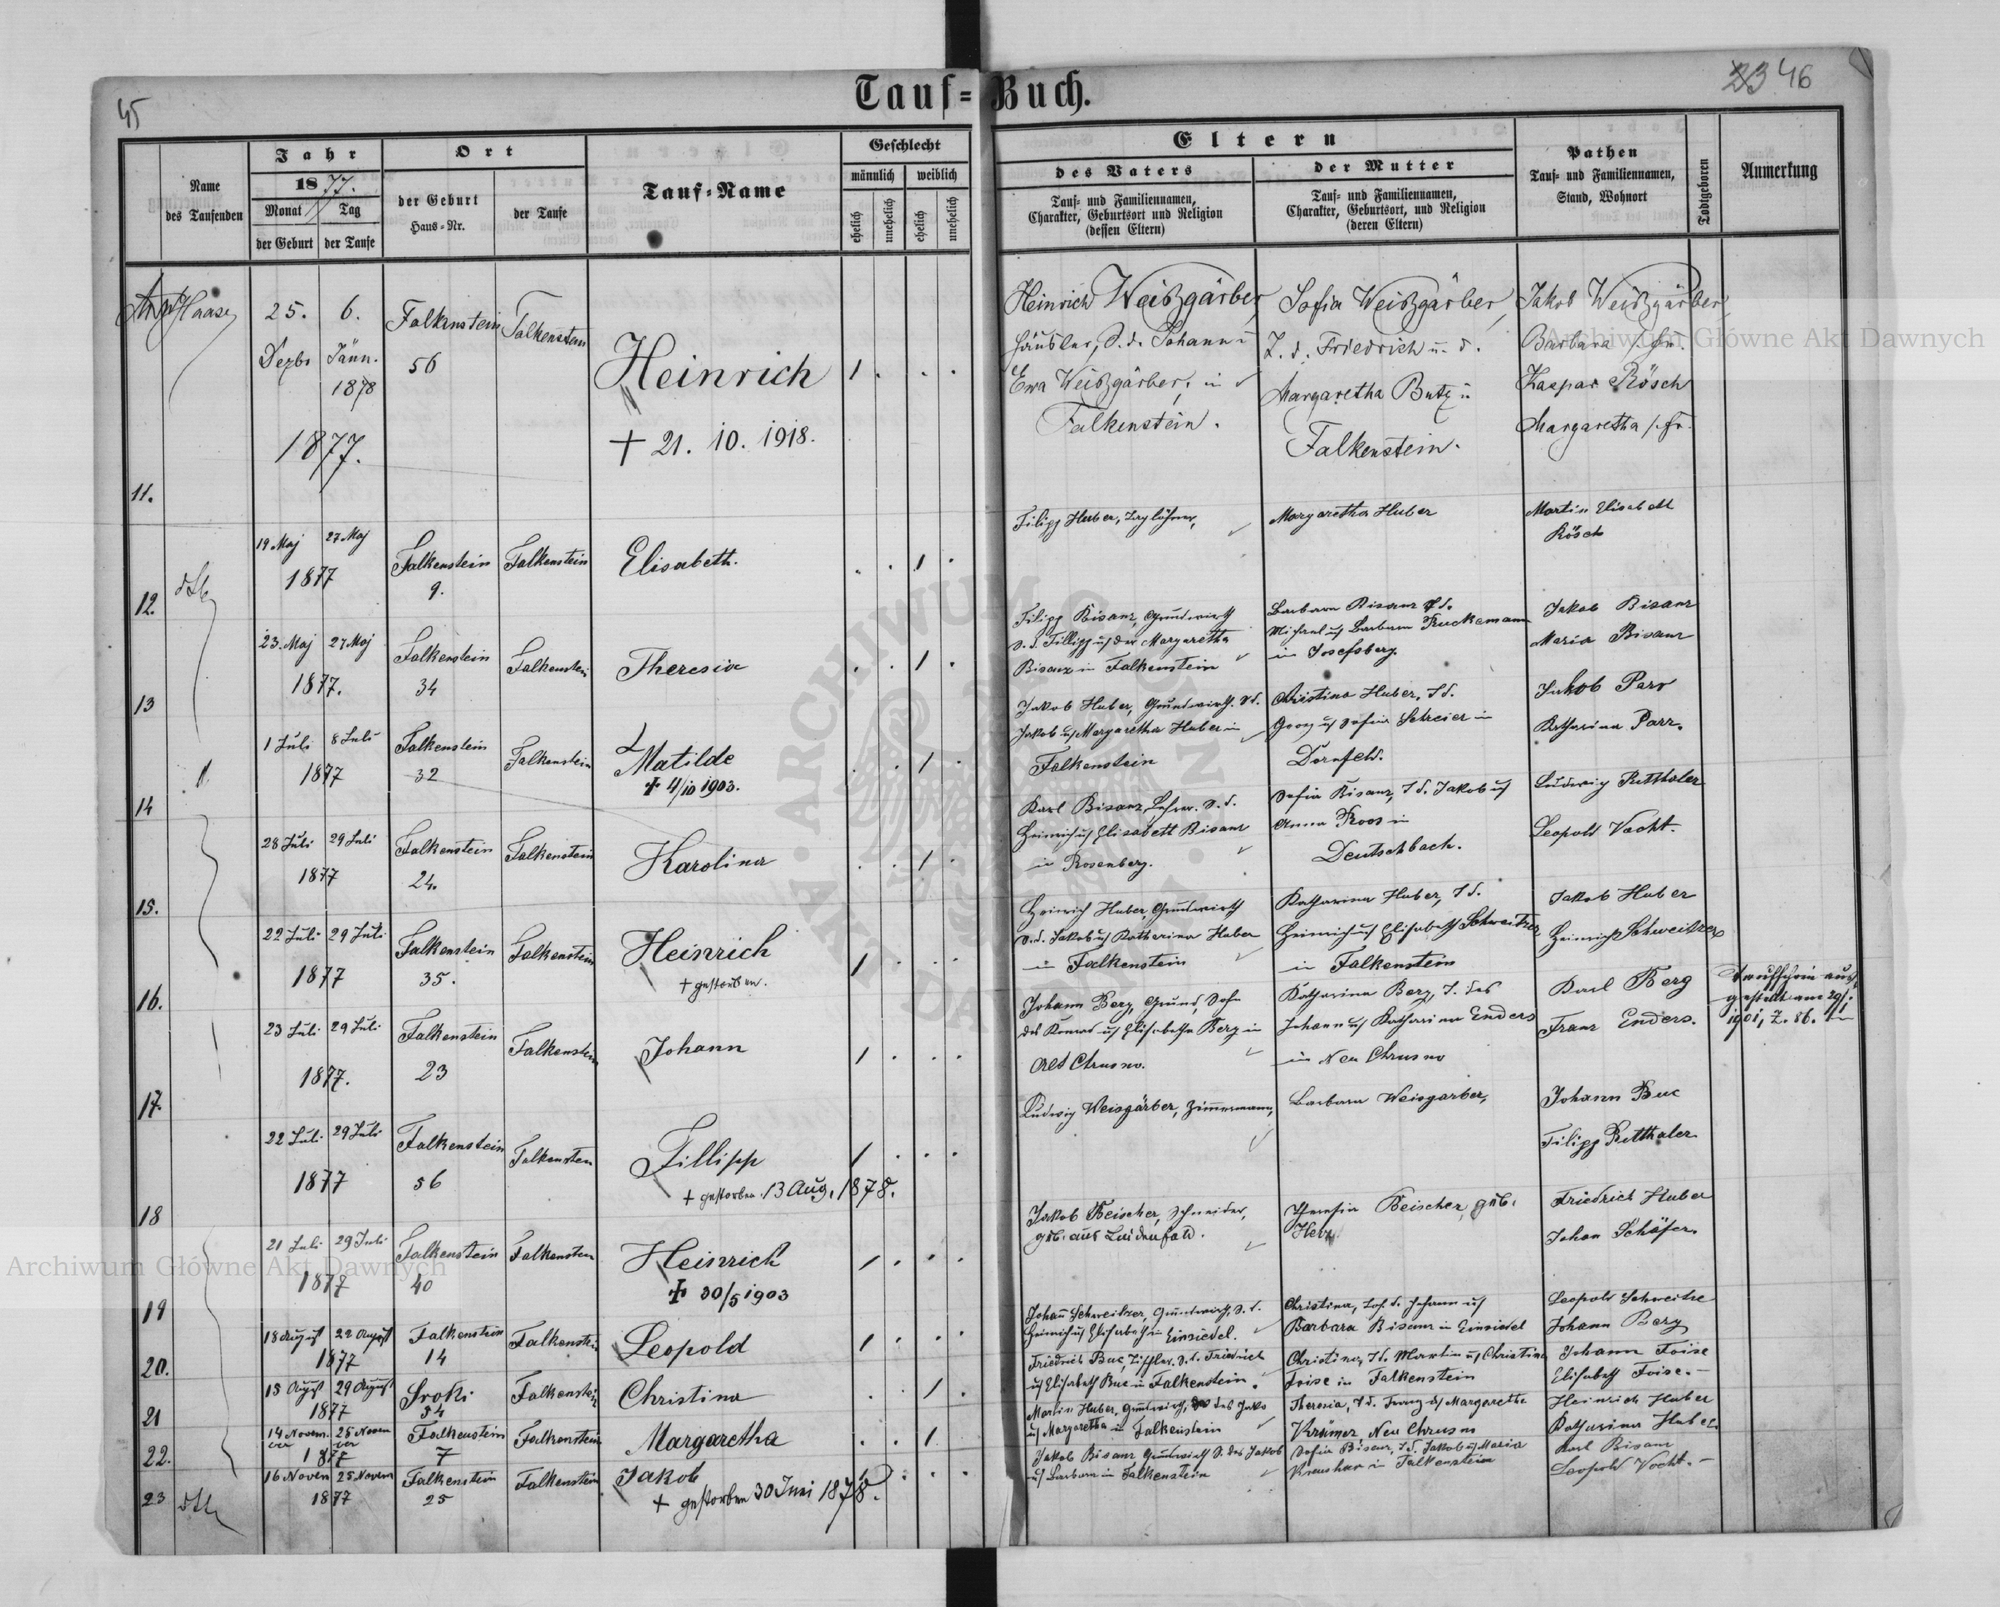 45
Tauf-Buch.
46
Name
des Taufenden
Jahr
1877.
Monat
Tag
der Geburt
der Taufe
Ort
der Geburt
Haus-Nr.
der Taufe
Tauf-Name
Geschlecht
männlich
weiblich
ehelich
unehelich
ehelich
unehelich
Eltern
des Vaters
Tauf- und Familiennamen,
Charakter, Geburtsort und Religion
(dessen Eltern)
der Mutter
Tauf- und Familiennamen,
Charakter, Geburtsort, und Religion
(deren Eltern)
Pathen
Tauf- und Familiennamen,
Stand, Wohnort
Todtgeboren
Anmerkung
Haase
25. 6. Falkenstein Falkenstein
Dezbr Jänn. 56
1878
1877.
Heinrich 1 . . .
+ 21. 10. 1918.
Heinrich Weißgärber,
Häusler, S. d. Johann u
Ewa Weißgärber, in
Falkenstein.
Sofia Weißgärber,
T. d. Friedrich u. d.
Margaretha Butz in
Falkenstein.
Jakob Weißgärber,
Barbara s. Fr.
Kaspar Rösch
Margaretha s. Fr.
11.
19 Maj 27 Maj
1877
Falkenstein
9.
Falkenstein
Elisabeth.
Filipp Huber, Taglöhner,
Margaretha Huber
Martin Elisabett
Rösch
12.
23. Maj 27 Maj
1877.
Falkenstein
34
Falkenstein
Theresia
Filipp Bisanz, Grundwirth
S. d. Fillipp u der Margaretha
Bisanz in Falkenstein
Barbara Bisanz T d.
Michael u Barbara Ruckemann
in Josefsberg.
Jakob Bisanz
Maria Bisanz
13
1 Juli 8 Juli
1877
Falkenstein
32
Falkenstein
Matilde
+ 4/10 1903.
Jakob Huber, Grundwirth. S d.
Jakob u Margaretha Huber in
Falkenstein
Christina Huber, T d.
Georg u Sofia Schreier in
Dornfeld.
Jakob Parr
Katharina Parr.
14
28 Juli 29 Juli
1877
Falkenstein
24.
Falkenstein
Karolina
Karl Bisanz, Lehrer. S. d.
Heinrich u Elisabett Bisanz
in Rosenberg.
Sofia Bisanz, T d. Jakob u
Anna Roos in
Deutschbach.
Ludwig Rutthaler
Leopold Vocht.
15.
22 Juli 29 Juli
1877
Falkenstein
35.
Falkenstein
Heinrich
+ gestorben.
Heinrich Huber, Grundwirth
S. d. Jakob u Katharina Huber
in Falkenstein
Katharina Huber, T d.
Heinrich u Elisabeth Schweitzer
in Falkenstein
Jakob Huber
Heinrich Schweitzer
16.
23 Juli 29 Juli
1877.
Falkenstein
23
Falkenstein
Johann
Johann Berg, Grund, Sohn
des Konrad u Elisabetha Berg in
Alt Chrusno.
Katharina Berg, T. des
Johann u Katharina Enders
in Neu Chrusno
Karl Berg
Franz Enders.
Taufschein aus
gestellt am 29/1.
1901, Z. 86.
17.
22 Juli 29 Juli
1877
Falkenstein
56
Falkenstein
Fillipp
+ gestorben 13 Aug. 1878.
Ludwig Weisgärber, Zimmermann,
Barbara Weisgarber,
Johann Buc
Filipp Rutthaler
18
21 Juli 29 Juli
1877
Falkenstein
40
Falkenstein
Heinrich
+ 30/5 1903
Jakob Beischer, Schneider,
geb. aus
Theresia Beischer, geb.
Jakob Friedrich Huber
Johan Schäfer.
19
18 August 22 August
1877
Falkenstein
14
Falkenstein
Leopold
Johann Schweitzer, Grundwirth, S. d.
Heinrich u Elisabeth in Einsiedel.
Christina, Toch. d. Johann u
Barbara Bisanz in Einsiedel
Leopold Schweitze
Johann Berg
20.
15 August 29 August
1877
Sroki
54
Falkenstein
Christina
Friedrich Buc, Tischler, S. d. Friedrich
u Elisabeth Buc in Falkenstein.
Christina, T d. Martin u Christina
Foise in Falkenstein
Johann Foise
Elisabeth Foise.-
21
14 Novem 25 Novem
1877
Falkenstein
7
Falkenstein
Margaretha
Martin Huber, Grundwirth, des Jako
u Margaretha in Falkenstein
Theresia, T d. Franz u Margaretha
Krämer Neu Chrusno
Heinrich Huber
Katharina Huber
22.
16 Novem 25 Novem
1877
Falkenstein
25
Falkenstein
Jakob
+ gestorben 30 Juni 1878.
Jakob Bisanz Grundwirth S. des Jakob
u Barbara in Falkenstein
Sofia Bisanz, T d. Jakob u Maria
in Falkenstein
Karl Bisanz
Leopold Vocht.-
23
Archiwum Główne Akt Dawnych
Archiwum Główne Akt Dawnych